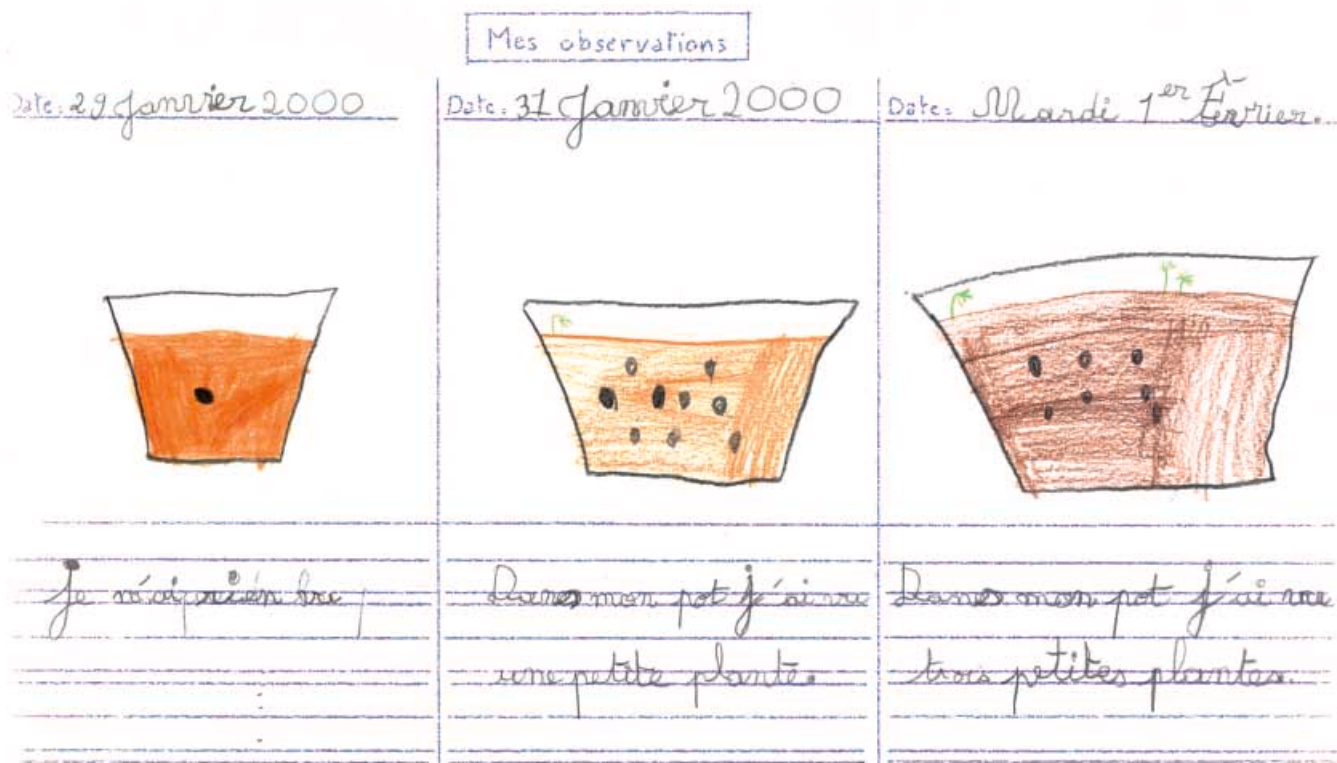 Mes observations
Date: 29 Janvier 2000
Je n'ai rien vu
Date: 31 Janvier 2000
Dans mon pot j'ai vu
une petite plante.
Date: Mardi 1er Février.
Dans mon pot j'ai vu
trois petites plantes.